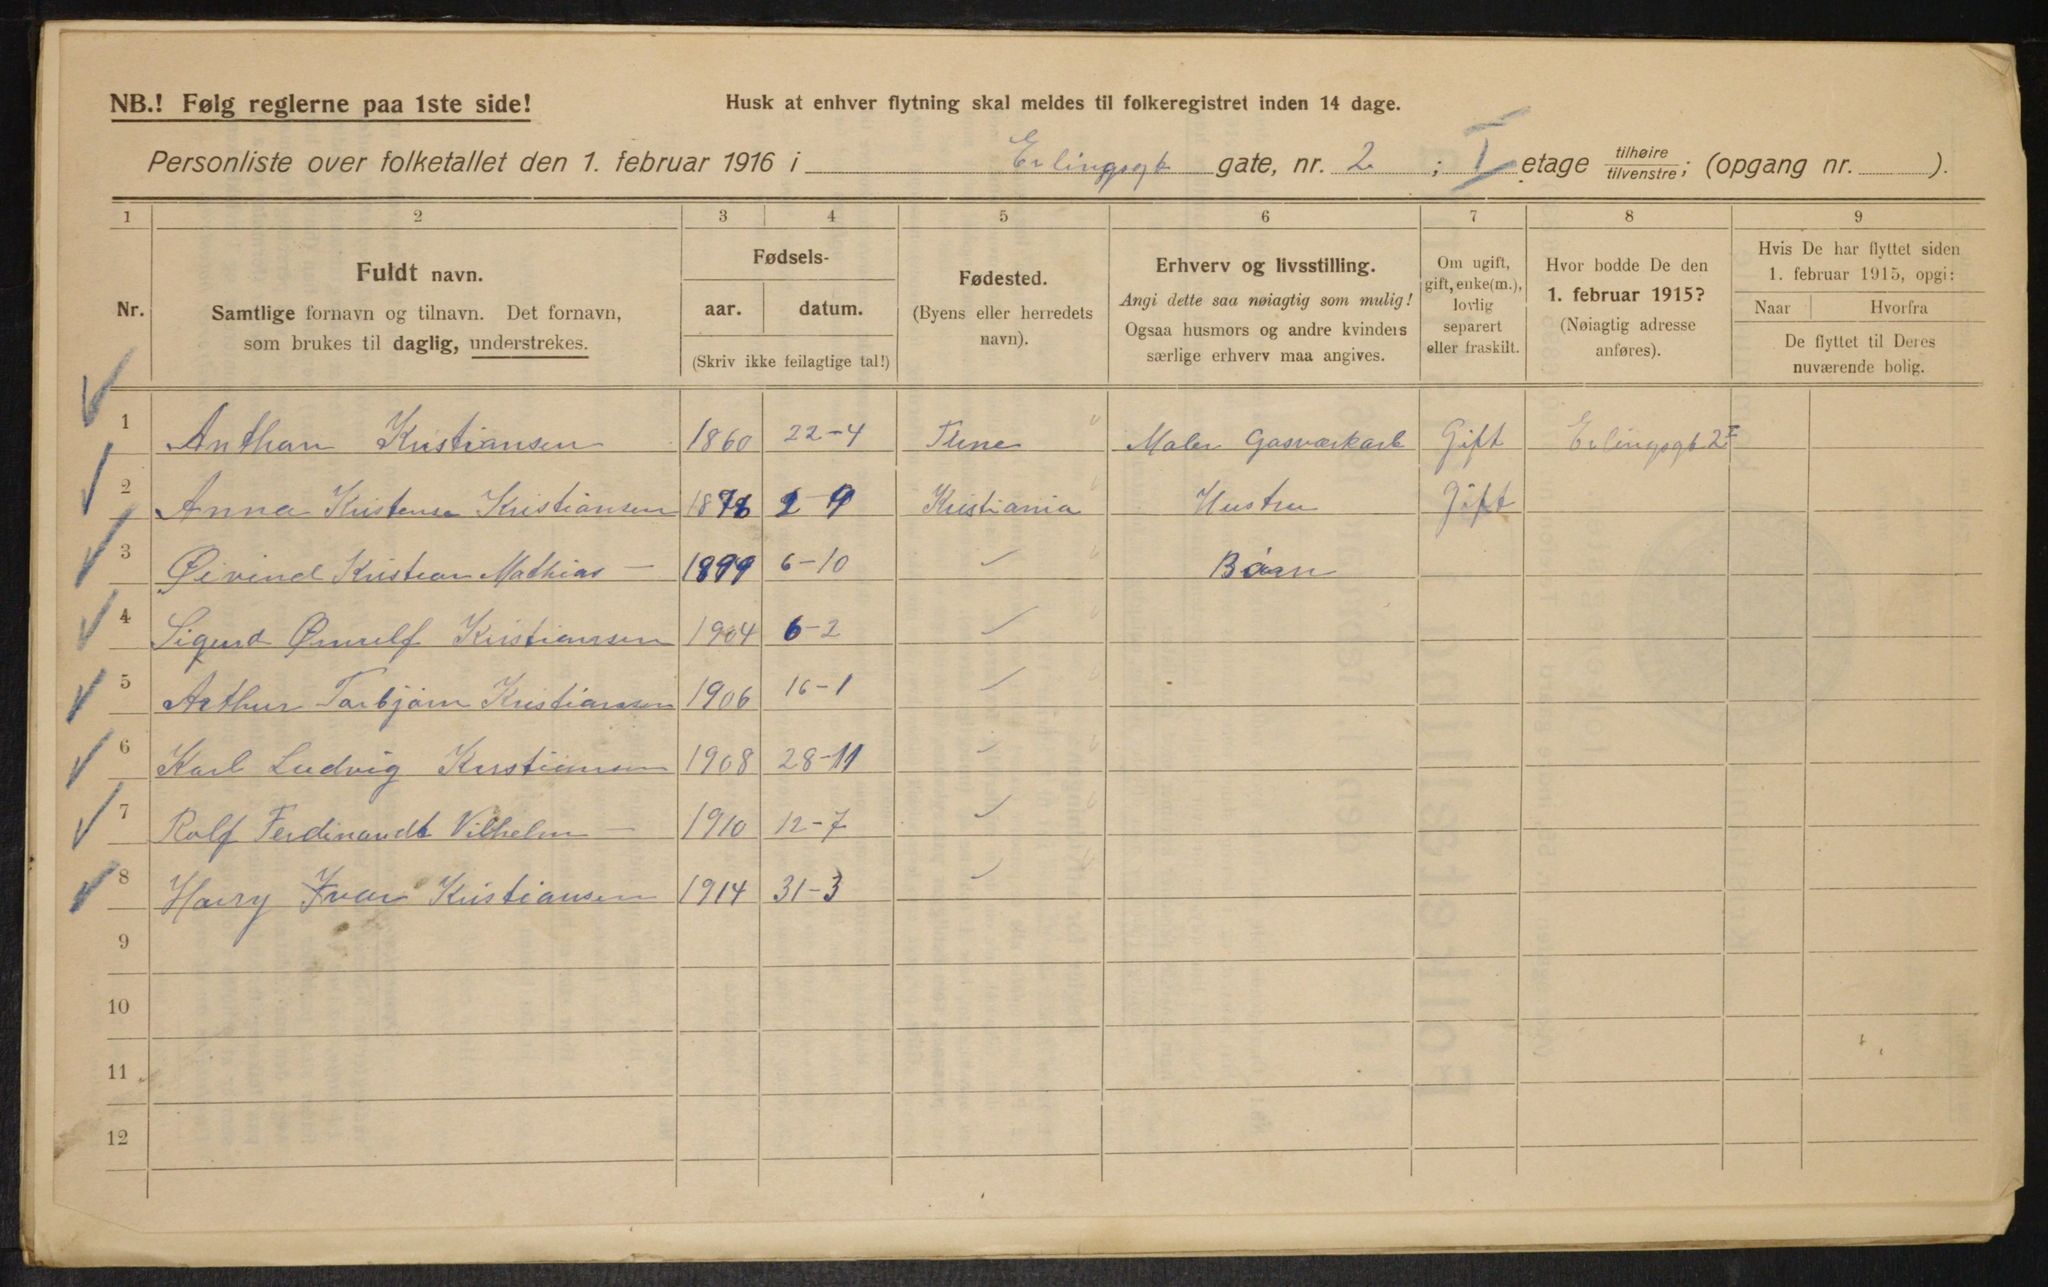 NB.! Følg reglerne paa 1ste side!
Husk at enhver flytning skal meldes til folkeregistret inden 14 dage.
Personliste over folketallet den 1. februar 1916 i Erlingsgt gate, nr. 2 ; I etage tilhøire/tilvenstre; (opgang nr. ).
1 2 3 4 5 6 7 8 9
Nr.
Fuldt navn.
Samtlige fornavn og tilnavn. Det fornavn,
som brukes til daglig, understrekes.
Fødsels-
aar. datum.
(Skriv ikke feilagtige tal!)
Fødested.
(Byens eller herredets
navn).
Erhverv og livsstilling.
Angi dette saa nøiagtig som mulig!
Ogsaa husmors og andre kvinders
særlige erhverv maa angives.
Om ugift,
gift, enke(m.),
lovlig
separert
eller fraskilt.
Hvor bodde De den
1. februar 1915?
(Nøiagtig adresse
anføres).
Hvis De har flyttet siden
1. februar 1915, opgi:
Naar Hvorfra
De flyttet til Deres
nuværende bolig.
1 Anthan Kristiansen 1860 22-4 Tune Maler Gasværkarb Gift Erlingsgt 2 I
2 Anna Kristense Kristiansen 9 Kristiania Hustru Gift
3 Øivind Kristian Mathias — 1899 6-10 Barn
4 Sigurd Ørnulf Kristiansen 1904 6-2
5 Arthur Torbjørn Kristianssen 1906 16-1
6 Karl Ludvig Kristiansen 1908 28-11
7 Rolf Ferdinandt Vilhelm — 1910 12-7
8 Harry Ivar Kristiansen 1914 31-3
9
10
11
12